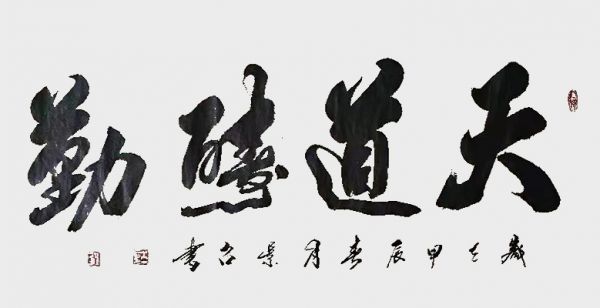 天道酬勤
歲在甲辰春月景召書